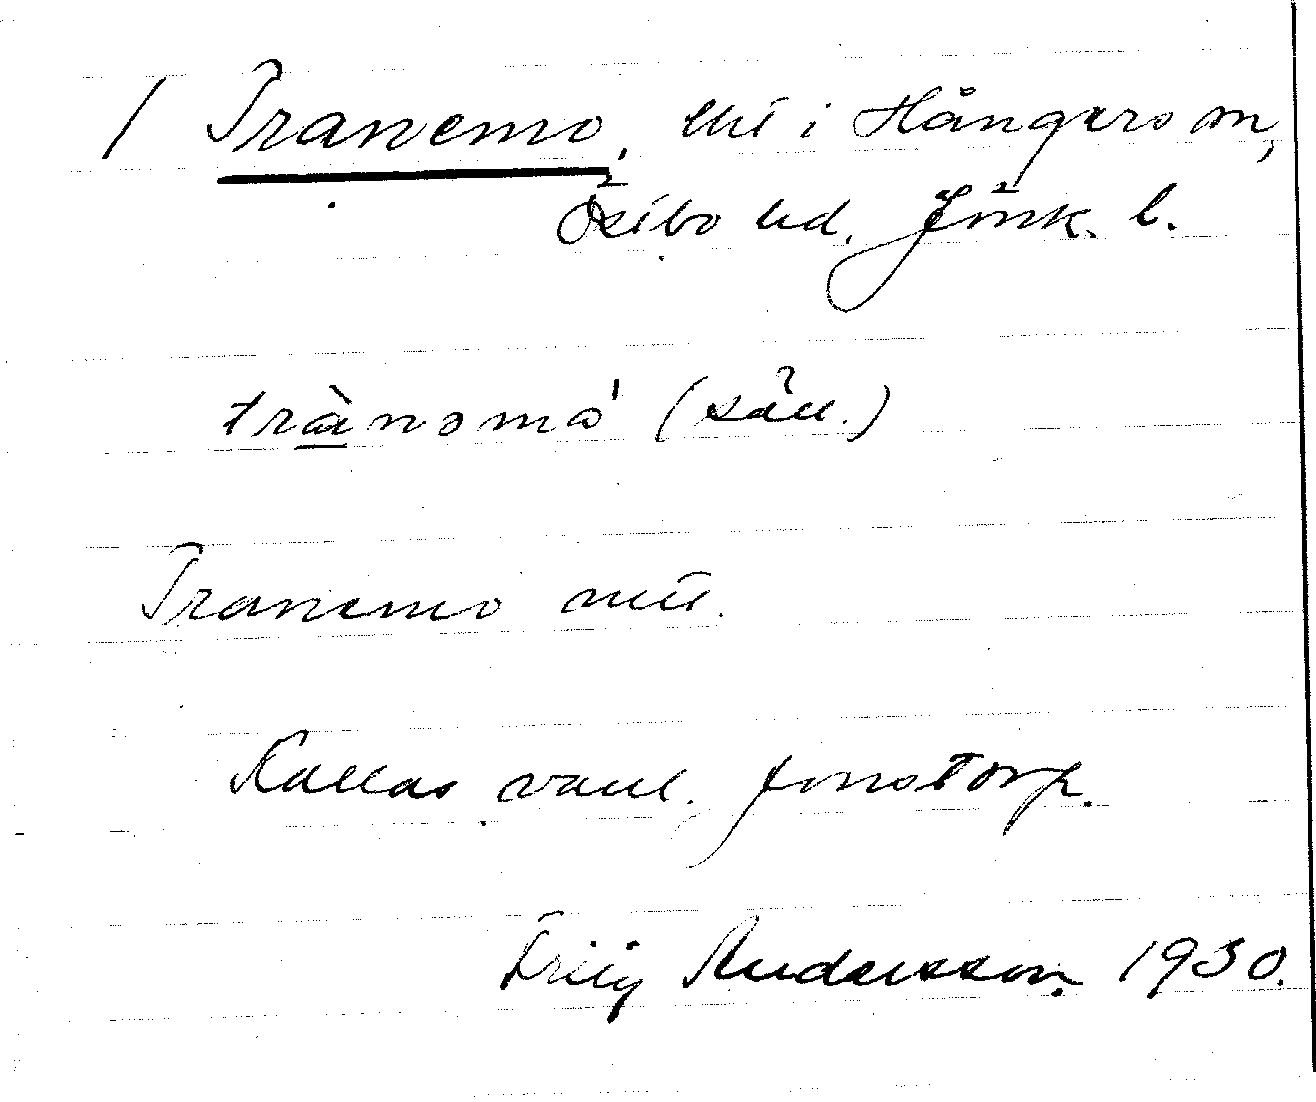 / Tranemo, lht i Hångers sn,
Östbo hd. Jönk. l.
trànəmó (säll.)
Tranemo mtl.
Kallas vanl. Jonstorp.
Friig Andersson. 1930.